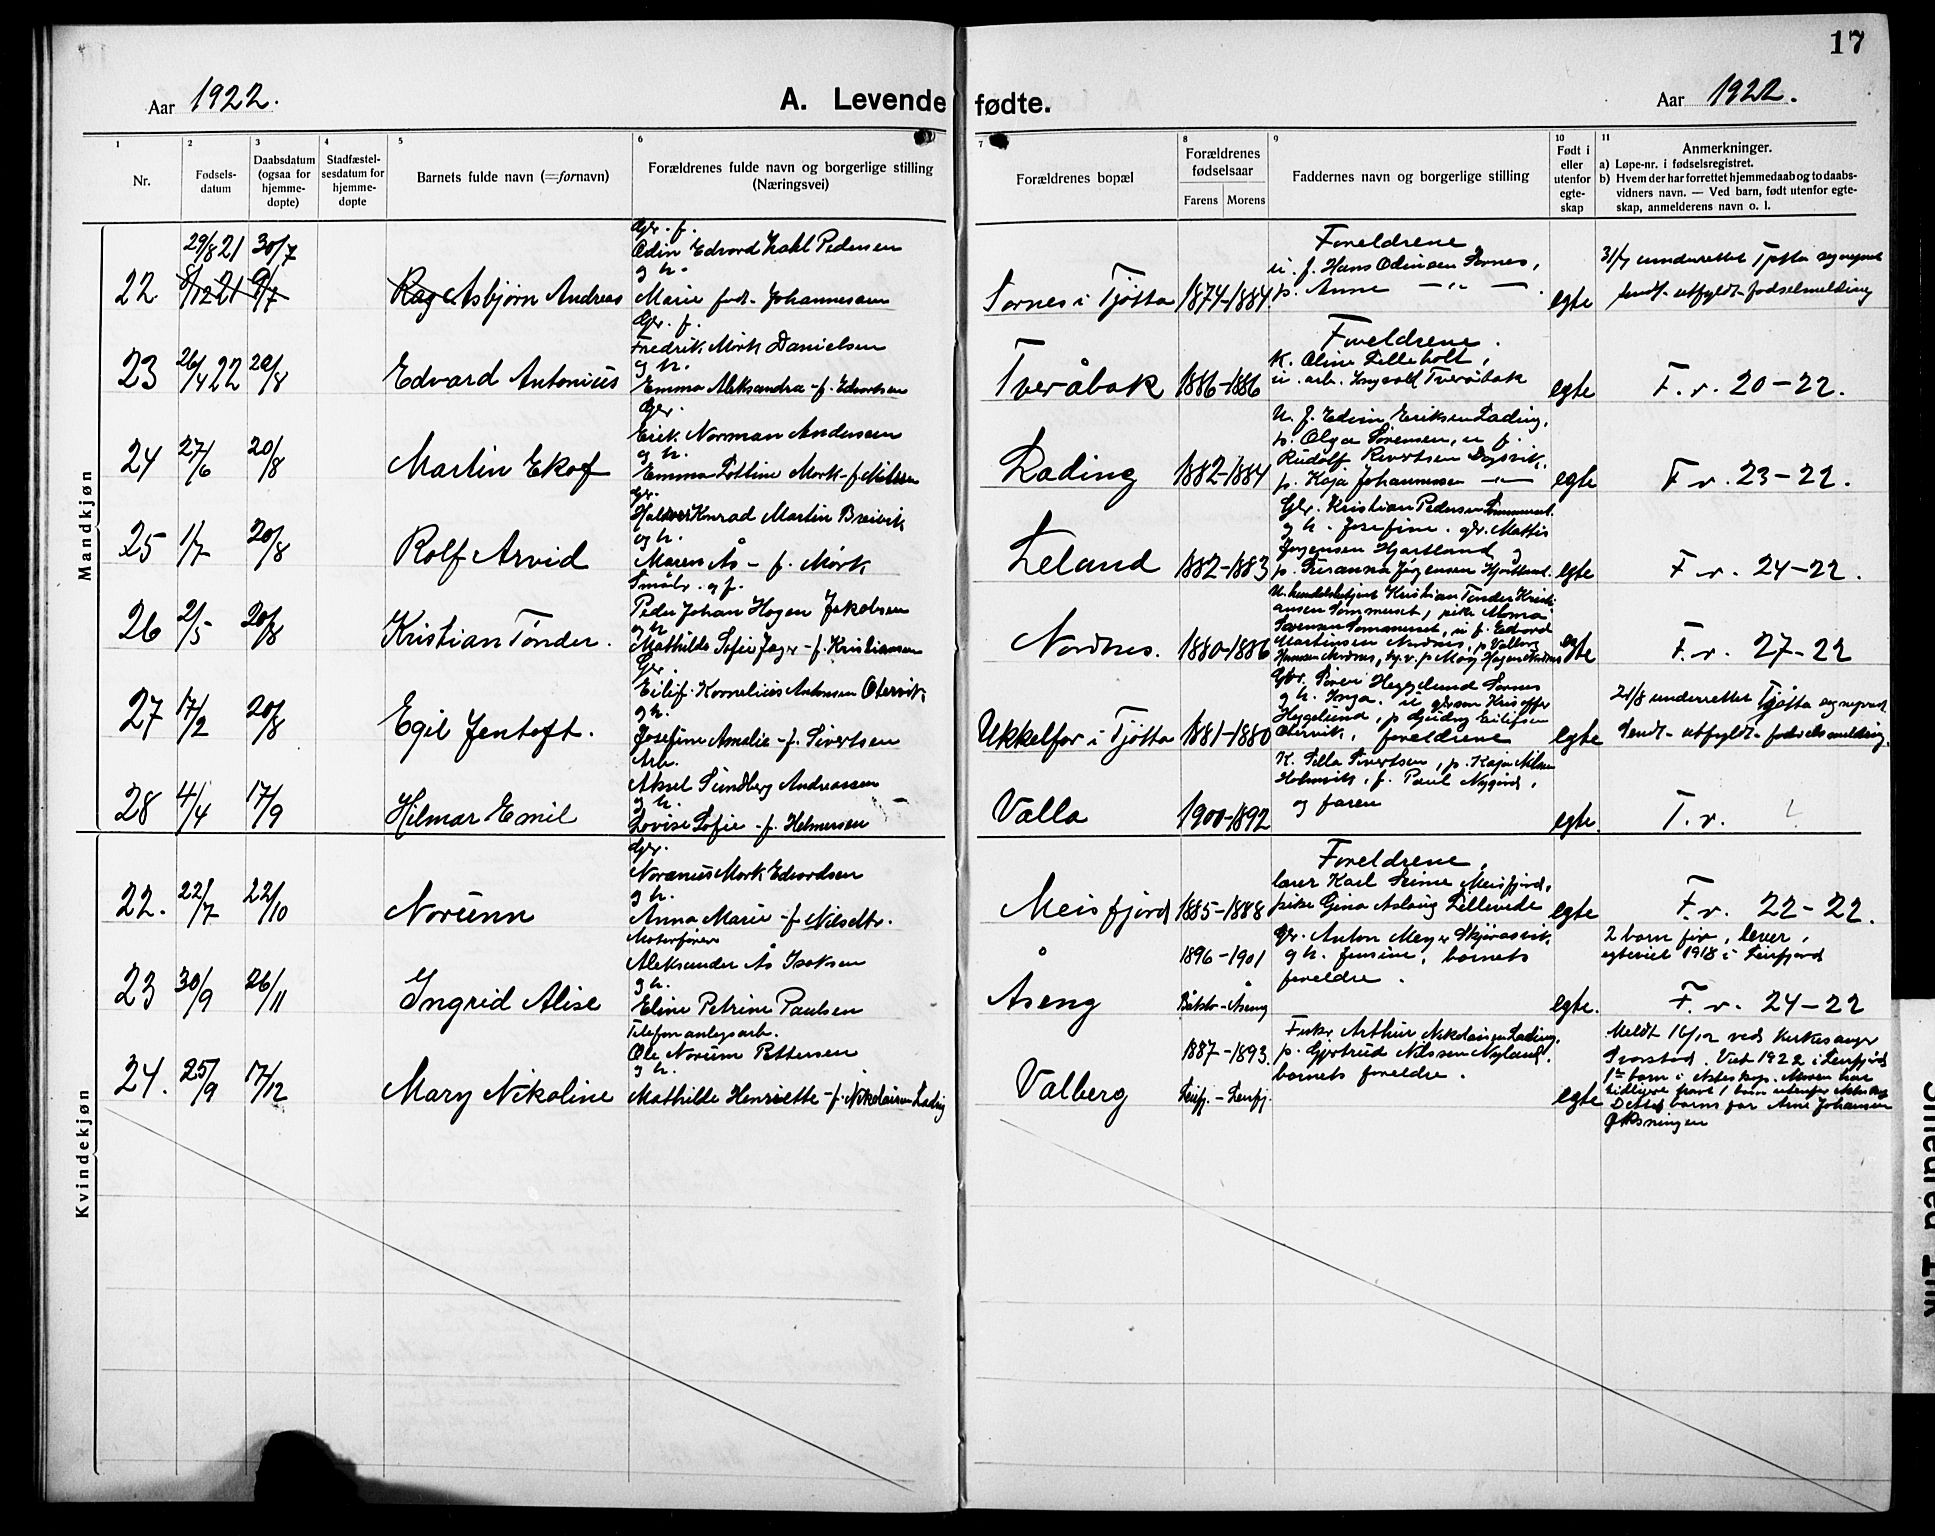 17
Aar 1922. A. Levende fødte. Aar 1922.
1 2 3 4 5 6 7 8 9 10 11
Nr.
Fødsels-
datum
Daabsdatum
(ogsaa for
hjemme-
døpte)
Stadfæstel-
sesdatum for
hjemme-
døpte
Barnets fulde navn (=fornavn)
Forældrenes fulde navn og borgerlige stilling
(Næringsvei)
Forældrenes bopæl
Forældrenes
fødselsaar
Farens Morens
Faddernes navn og borgerlige stilling
Født i
eller
utenfor
egte-
skap
Anmerkninger.
a) Løpe-nr. i fødselsregistret.
b) Hvem der har forrettet hjemmedaab og to daabs-
vidners navn. — Ved barn, født utenfor egte-
skap, anmelderens navn o. l.
Mandkjøn
22 29/8 21 30/7
8/12 21 9/7
Asbjørn Andreas
Gbr. f.
Odin Edvard Pedersen
og h.
Marie født Johannessen
Sørnes i Tjøtta 1874-1884
Foreldrene
u. f. Hans Odinsen Sørnes,
p. Anne — " —
egte
31/7 underrettet Tjøtta sogneprest
Sendt utfyldt fødselmelding
23 26/4 22 20/8 Edvard Antonius
Gbr. f.
Fredrik Mørk Danielsen
og h.
Emma Aleksandra - f. Edvartsen
Tveråbak 1886-1886
Foreldrene.
K. Oline Lilleholt,
u. arb. Ingvald Tveråbak
egte F. r. 20-22.
24 27/6 20/8 Martin Ekof
Gbr.
Erik Norman Andersen
og h.
Emma Lottine Mørk - f. Nilsen
Lading 1882-1884
U. f. Edvin Eriksen Lading,
p. Olga Sørensen, u. f.
Rudolf Sivertsen Dagsvik,
p. Kaja Johannessen — " —
egte F. r. 23-22.
25 1/7 20/8 Rolf Arvid
Gbr.
Konrad Martin Breivik
og h.
Maren Ås - f. Mørk
Leland 1882-1883
Gbr. Kristian Pedersen Sommerset
og h. Josefine. gbr. Mattis
Jørgensen Hjartland,
p. Susanna Jørgensen Hjartland.
egte F. r. 24-22.
26 2/5 20/8 Kristian Tønder.
Småbr. og f.
Peder Johan Hagen Jakobsen
og h.
Mathilde Sofie Jager - f. Kristiansen
Nordnes. 1880-1886
U. handelsbetjent Kristian Tønder Kristi
ansen Sommerset, pike Mona
Sørensen Sommerset, u. f. Edvard
Martinsen Nordnes, p. Valborg
Hansen Nordnes,
egte F. r. 27-22
27 17/2 20/8 Egil Jentoft.
Gbr.
Eilif Kornelius Antonsen Otervik
og h.
Josefine Amalie - f. Sivertsen
Ukkelfor i Tjøtta 1881-1880
Gbr. Heggelund Sørnes
og h. Inga. u. gbrsøn Kristoffer
Heggelund, p. Gudny Eilifsen
Otervik, foreldrene
egte
21/8 underrettet Tjøtta sogneprest
Sendt utfyldt fødselsmelding.
28 4/4 17/9 Hilmar Emil
Arb.
Aksel Sundberg Andreassen
og h.
Lovise Sofie - f. Helmersen
Valla 1900-1892
K. Silla Sivertsen, p. Kaja Nilsen
Holmvik, f. Paul Nygård,
og faren
egte. F. r.
Kvindekjøn
22. 22/7 22/10 Norunn
Gbr.
Noranus Mørk Edvardsen
og h.
Anna Marie - f Nilsdtr.
Meisfjord 1885-1888
Foreldrene,
lærer Karl Meisfjord,
pike Gina Aslaug Lillevede
egte F. r. 22-22.
23 30/9 26/11 Ingrid Alise
Motorfører
Aleksander Ås Isaksen
og h.
Eline Petrine Paulsen
Åseng 1896-1901
Båtstr-Åseng
Gbr. Anton Meyer Skjåvasvik,
og h. Jensine, barnets
foreldre.
egte.
2 barn før, lever,
egteviet 1918 i Leirfjord
F. r. 24-22
24. 25/9 17/12 Mary Nikoline
Telefonanlegsarb.
Ole Norum Pettersen
og h.
Mathilde Henriette - f. Nikolaisen Lading
Valberg 1887-1893.
Leirfj. - Leirfj.
Fisker Arthur Nikolaisen Lading,
p. Gjertrud Nilssen Nyland,
barnets foreldre.
egte
Meldt 16/12 ved kirkesanger
Viet 1922 i Leirfjord
1ste barn i ekteskap. Moren har
tidligere født 1 barn utenfor ekteskap
Dette barns far Arne Johansen